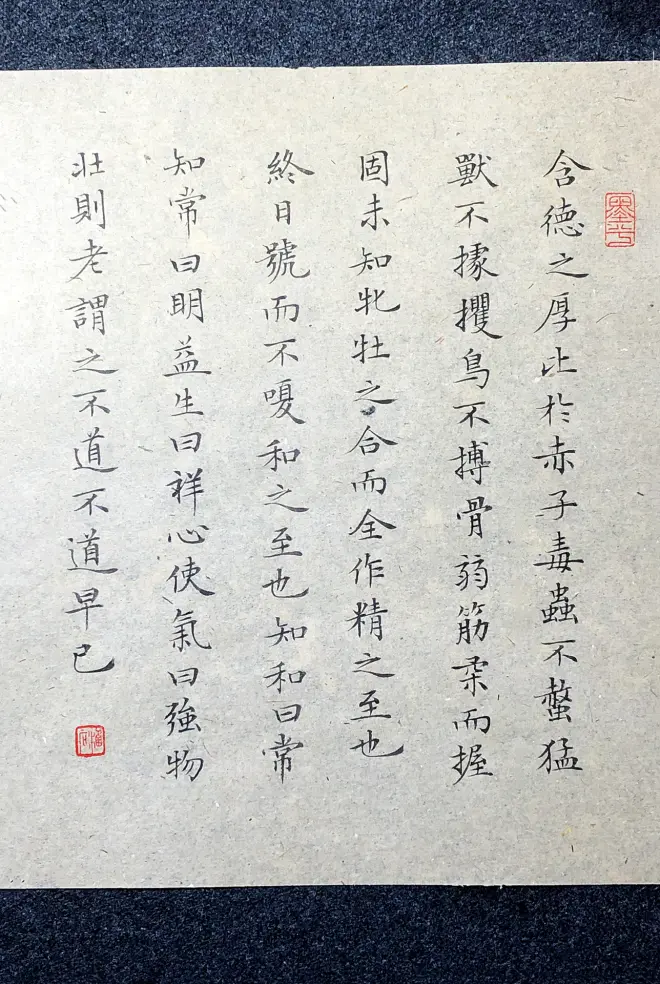 含德之厚比於赤子毒蟲不螫猛
獸不據攫鳥不搏骨弱筋柔而握
固未知牝牡之合而全作精之至也
終日號而不嗄和之至也知和曰常
知常曰明益生曰祥心使氣曰強物
壯則老謂之不道不道早已